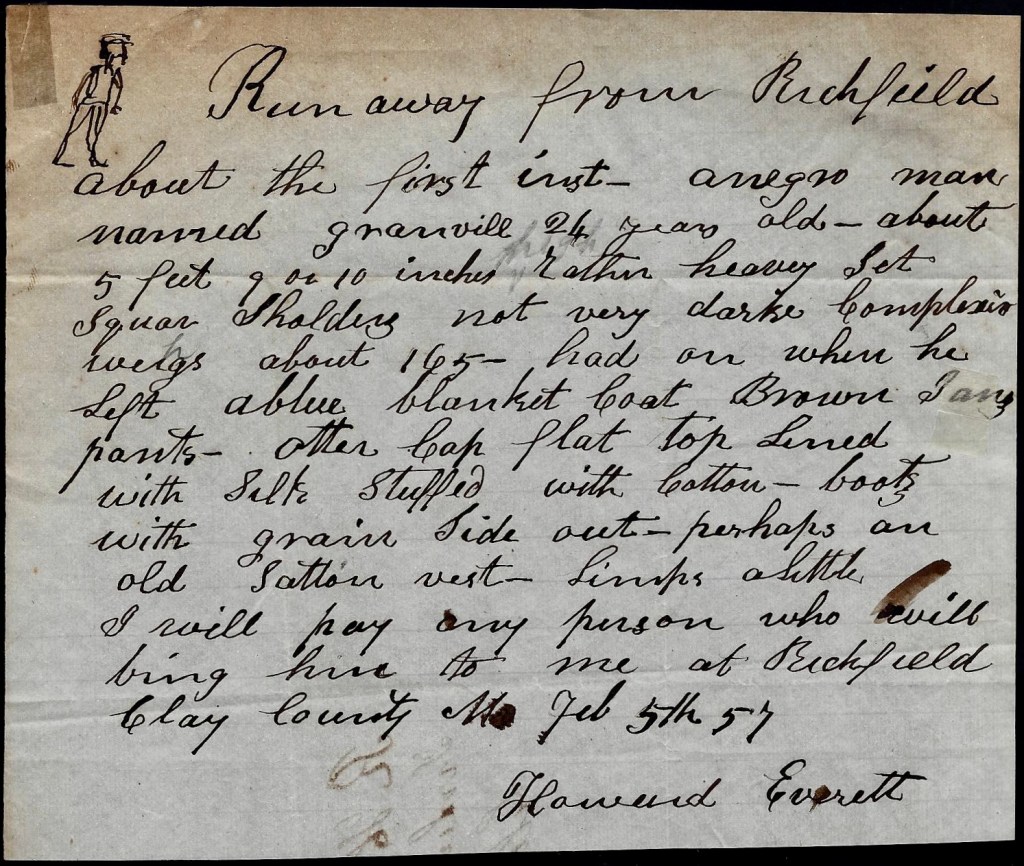 Run away from Richfield
about the first inst- anegro man
named granvill 24 years old - about
5 feet 9 or 10 inches rather heavy Set
Squar Sholders not very darke Complexio
weigs about 165 - had on when he
Left ablue blanket Coat Brown Jans
pants - otter Cap flat top Lined
with Silk Stuffed with Cotton - boots
with grain Side out - perhaps an
old Satton vest - Limps alittle
I will pay any person who will
bring him to me at Richfield
Clay County Mo Feb 5th 57
Howard Everett